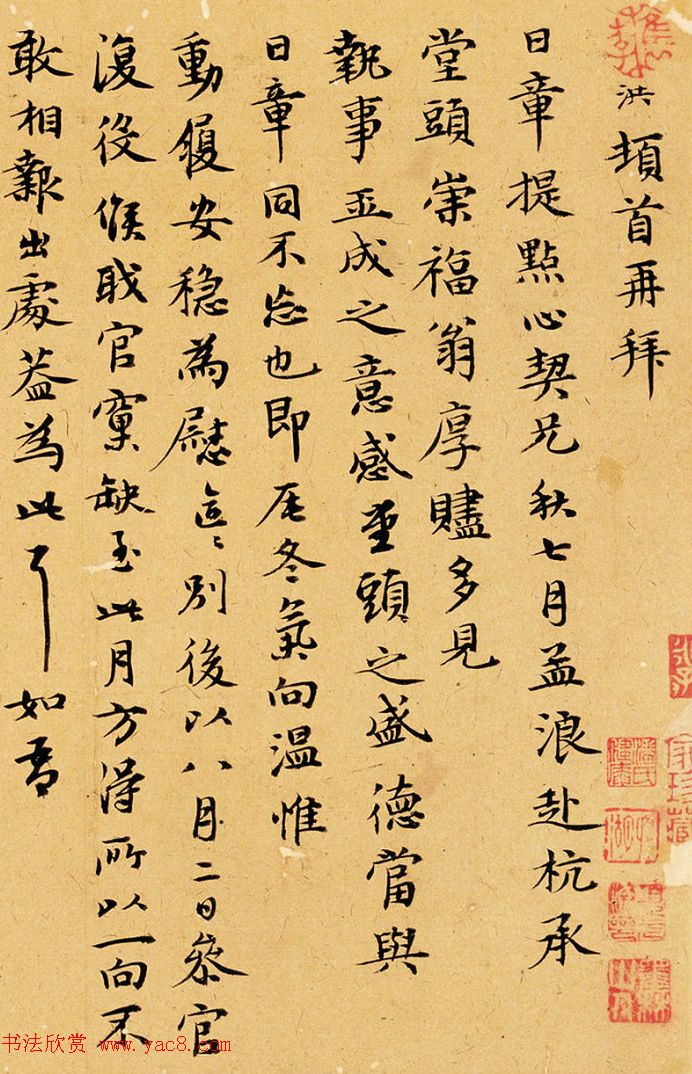 洪頓首再拜
日章提點心契兄秋七月孟浪赴杭承
堂頭崇福翁厚贐多見
執事玉成之意感堂頭之盛德當與
日章同不忘也即辰冬氣向溫惟
動履安穩為慰區〻別後以八月二日參官
復役候職官窠缺至此月方得所以一向不
敢相報出處葢為此耳如吾
书法欣赏 www.yac8.com